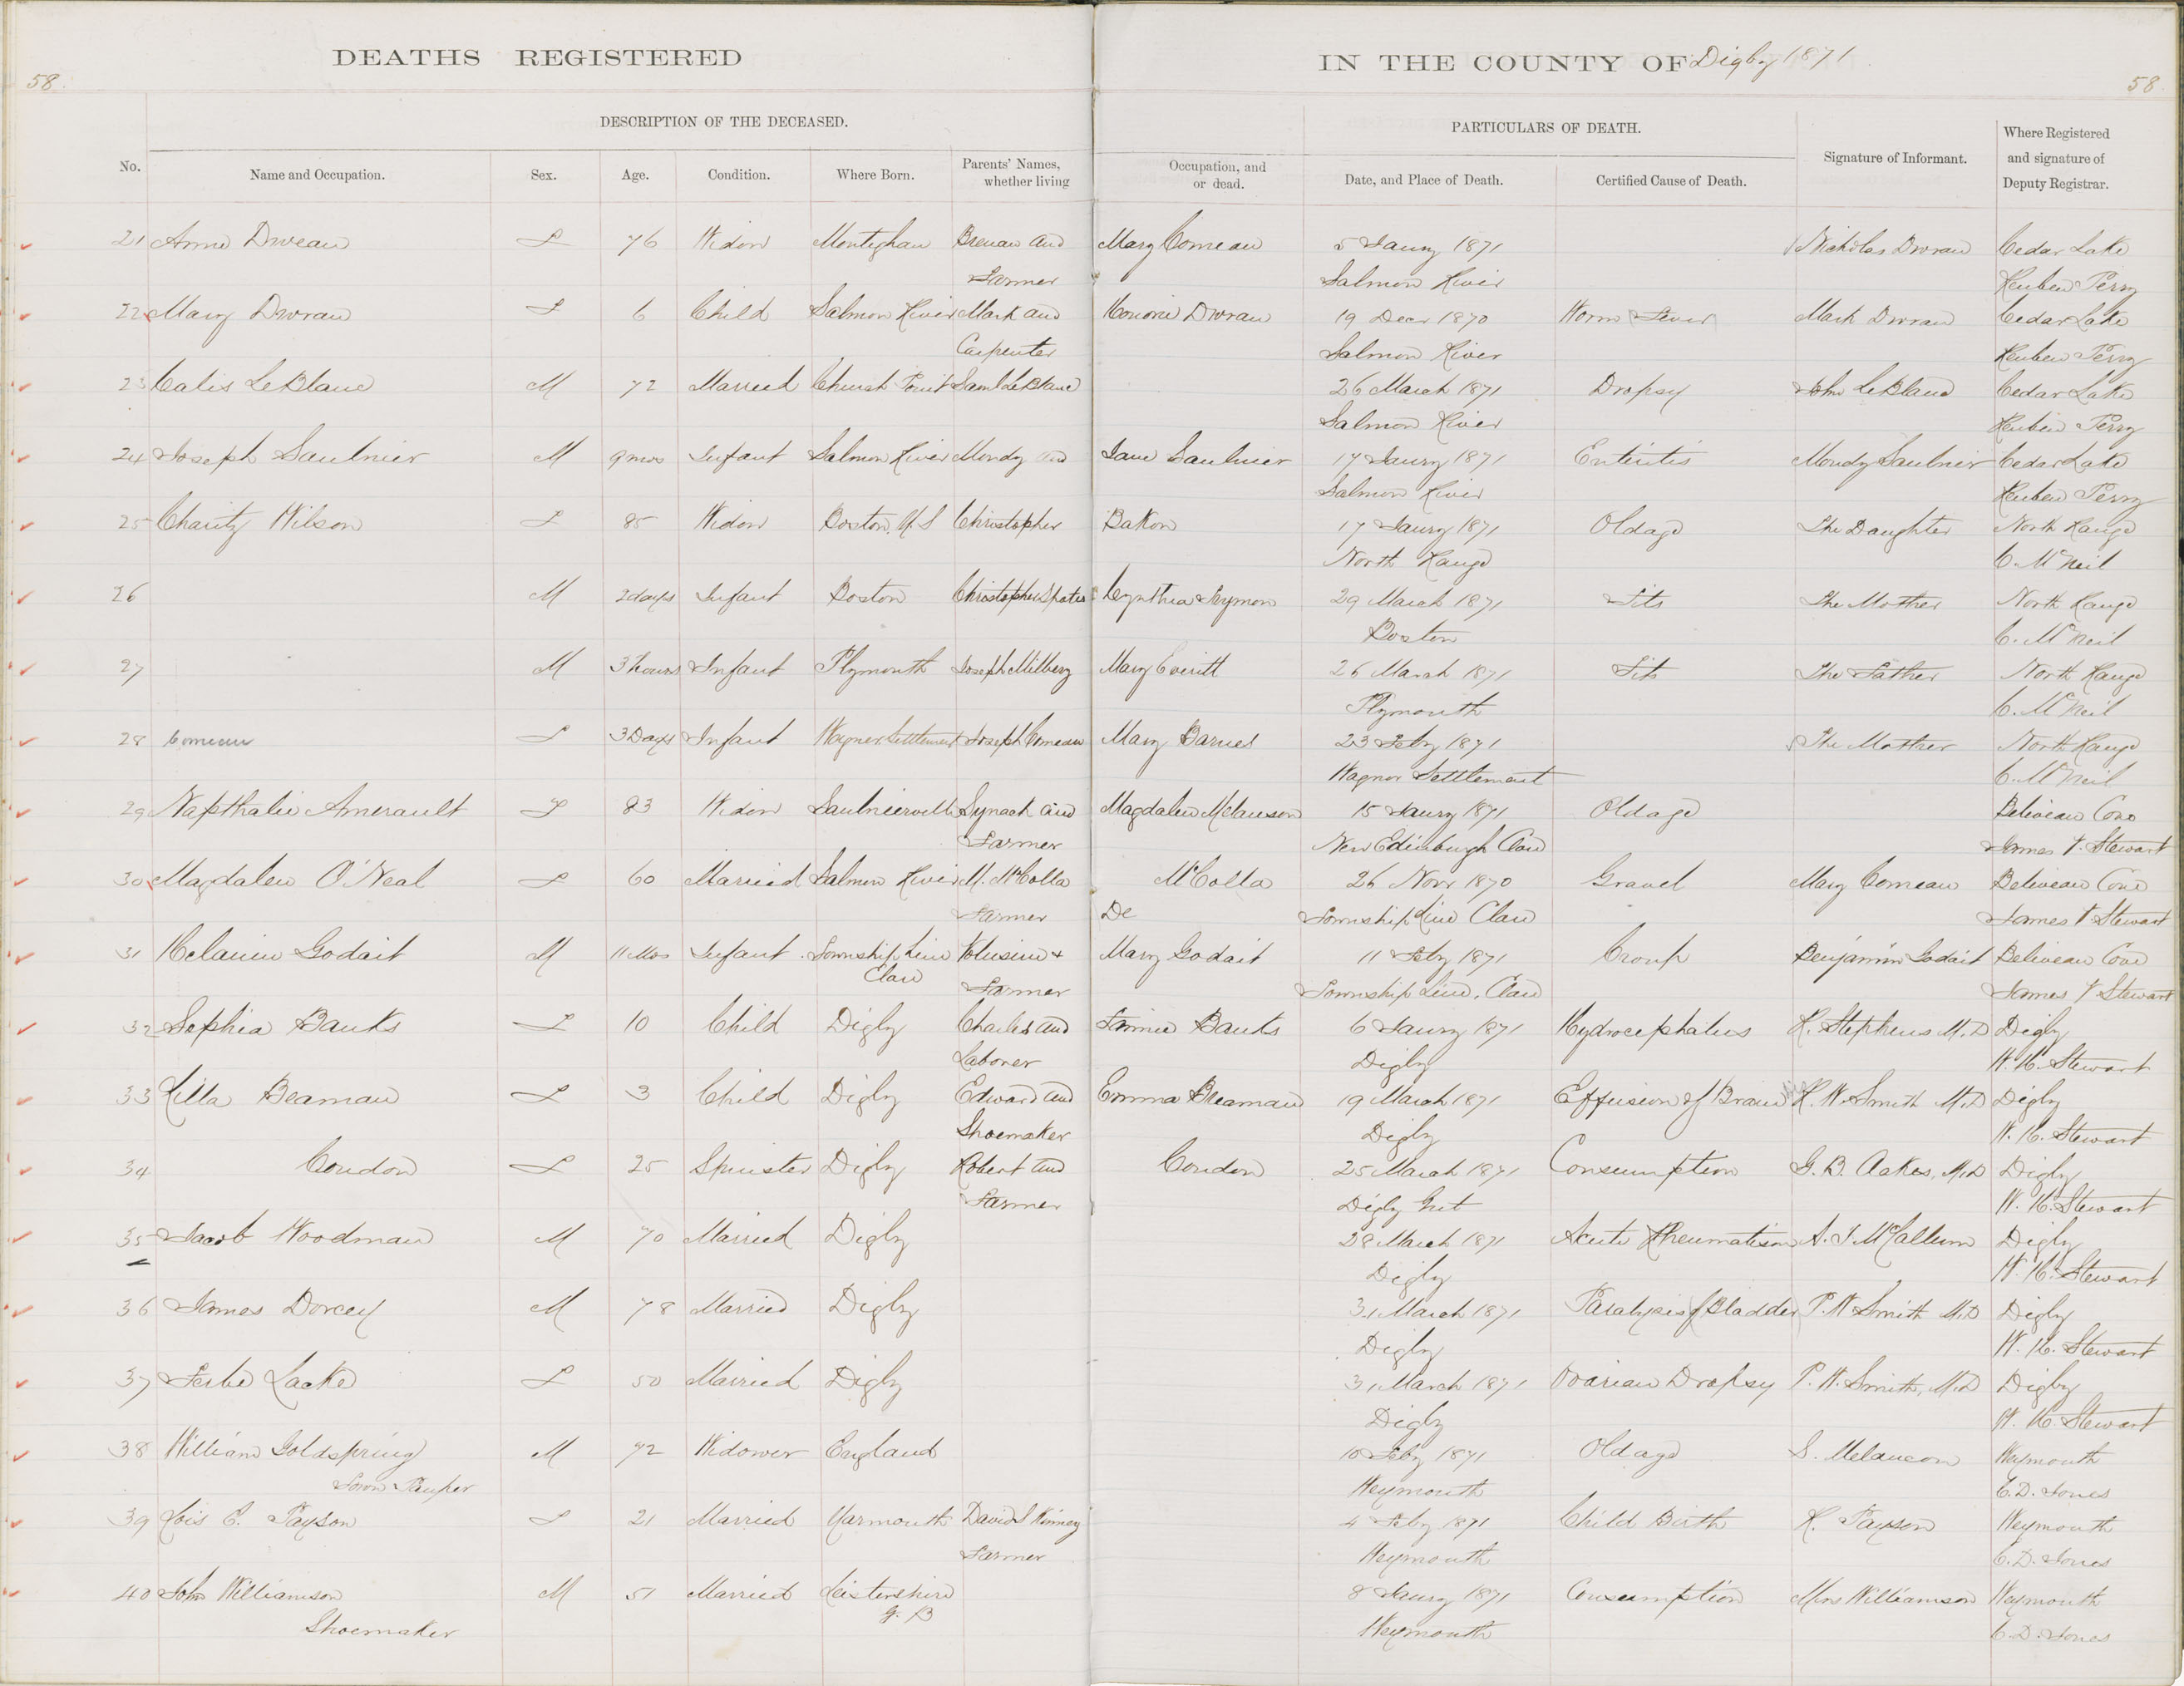 DEATHS REGISTERED IN THE COUNTY OF Digby 1871
58. 58.
DESCRIPTION OF THE DECEASED. PARTICULARS OF DEATH.
No. Name and Occupation. Sex. Age. Condition. Where Born. Parents' Names, whether living Occupation, and or dead. Date, and Place of Death. Certified Cause of Death. Signature of Informant. Where Registered and signature of Deputy Registrar.
21 Anne F 76 Widow and Mary Comeau 5 Jany 1871 Nicholas Cedar Lake
Farmer Salmon River Reuben Perry
22 Mary F 6 Child Salmon River Mark and 19 Decr 1870 Worm Fever Mark Cedar Lake
Carpenter Salmon River Reuben Perry
23 Calis LeBlanc M 72 Married Church Point Saml LeBlanc 26 March 1871 Dropsy John LeBlanc Cedar Lake
Salmon River Reuben Perry
24 Joseph Saulnier M 9 mos Infant Salmon River Mondy and Jane Saulnier 17 Jany 1871 Enteritis Mondy Saulnier Cedar Lake
Salmon River Reuben Perry
25 Charity Wilson F 85 Widow Boston, U S Christopher Bakon 17 Jany 1871 Oldage The Daughter North Range
North Range C. McNeil
26 M 2 days Infant Boston Christopher Cynthia 29 March 1871 Fits The Mother North Range
Boston C. McNeil
27 M 3 hours Infant Plymouth Joseph Milbery Mary Everitt 26 March 1871 Fits The Father North Range
Plymouth C. McNeil
28 Comeau F 3 Days Infant Wagner Settlement Joseph Comeau Mary Barnes 23 Feby 1871 The Mother North Range
Wagner Settlement C. McNeil
29 Napthalie Amerault F 83 Widow Saulnierville and Magdalen Melanson 15 Jany 1871 Oldage Beliveau Cove
Farmer New Edinburgh Clare James T. Stewart
30 Magdalen O'Neal F 60 Married Salmon River M. McColla McColla 26 Novr 1870 Gravel Mary Comeau Beliveau Cove
Farmer De Township Line Clare James T. Stewart
31 Godait M 11 Mos Infant Township Line & Mary Godait 11 Feby 1871 Croup Benjamin Godait Beliveau Cove
Clare Farmer Township Line, Clare James T Stewart
32 Sophia Banks F 10 Child Digby Charles and Fannie Banks 6 Jany 1871 Hydrocephalus Stephens M.D Digby
Laborer Digby Stewart
33 Lilla Beaman F 3 Child Digby Edward and Emma Beaman 19 March 1871 Effusion of Brain Smith M.D Digby
Shoemaker Digby Stewart
34 Condon F 25 Spinster Digby Robert and Condon 25 March 1871 Consumption M.D Digby
Farmer Digby Gut Stewart
35 Jacob Woodman M 70 Married Digby 28 March 1871 Acute Rheumatism McCallum Digby
Digby Stewart
36 James Dorcey M 78 Married Digby 31 March 1871 Paralysis of Bladder P. W Smith M.D Digby
Digby Stewart
37 Lacke F 50 Married Digby 31 March 1871 Ovarian Dropsy P. W. Smith, M.D Digby
Digby Stewart
38 William Goldspring M 72 Widower England 10 Feby 1871 Oldage S. Melancon Weymouth
Town Pauper Weymouth C. D. Jones
39 Lois E. Payson F 21 Married Yarmouth David S 4 Feby 1871 Child Birth H. Payson Weymouth
Farmer Weymouth C. D. Jones
40 John Williamson M 51 Married Leistershire 8 Jany 1871 Consumption Mrs Williamson Weymouth
Shoemaker G. B Weymouth C. D. Jones